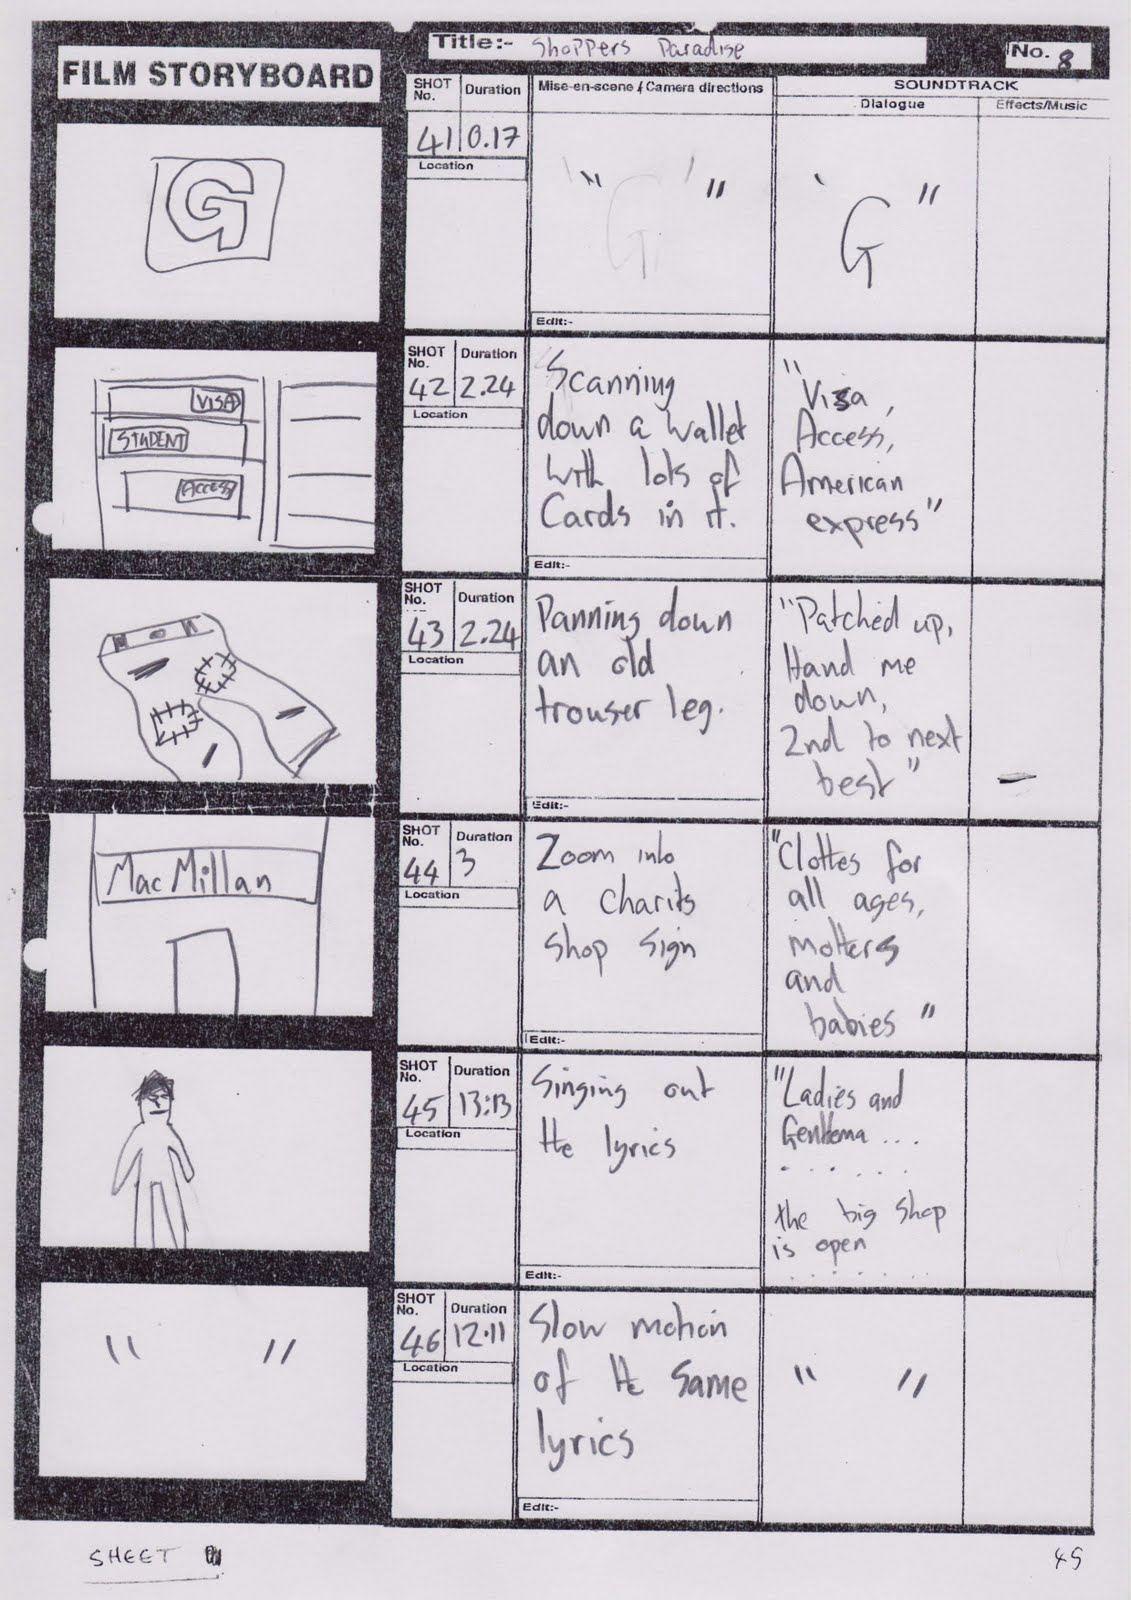 Title:- Shoppers Paradise
No. 8
FILM STORYBOARD
SHOT No. Duration
Mise-en-scene / Camera directions
SOUNDTRACK
Dialogue
Effects/Music
G
41 0.17
Location
" "
" G "
Edit:-
VISA
STUDENT
ACCESS
SHOT No. Duration
42 2.24
Location
Scanning
down a wallet
with lots of
Cards in it.
Edit:-
"Visa,
Access,
American
express"
SHOT No. Duration
43 2.24
Location
Panning down
an old
trouser leg.
Edit:-
"Patched up,
Hand me
down,
2nd to next
best"
MacMillan
SHOT No. Duration
44 3
Location
Zoom into
a charity
shop sign
Edit:-
"Clothes for
all ages,
mothers
and
babies"
SHOT No. Duration
45 13:13
Location
Singing out
the lyrics
Edit:-
"Ladies and
Gentlema...
.......
the big shop
is open
.......
" "
SHOT No. Duration
46 12.11
Location
Slow motion
of the same
lyrics
Edit:-
" "
SHEET
45